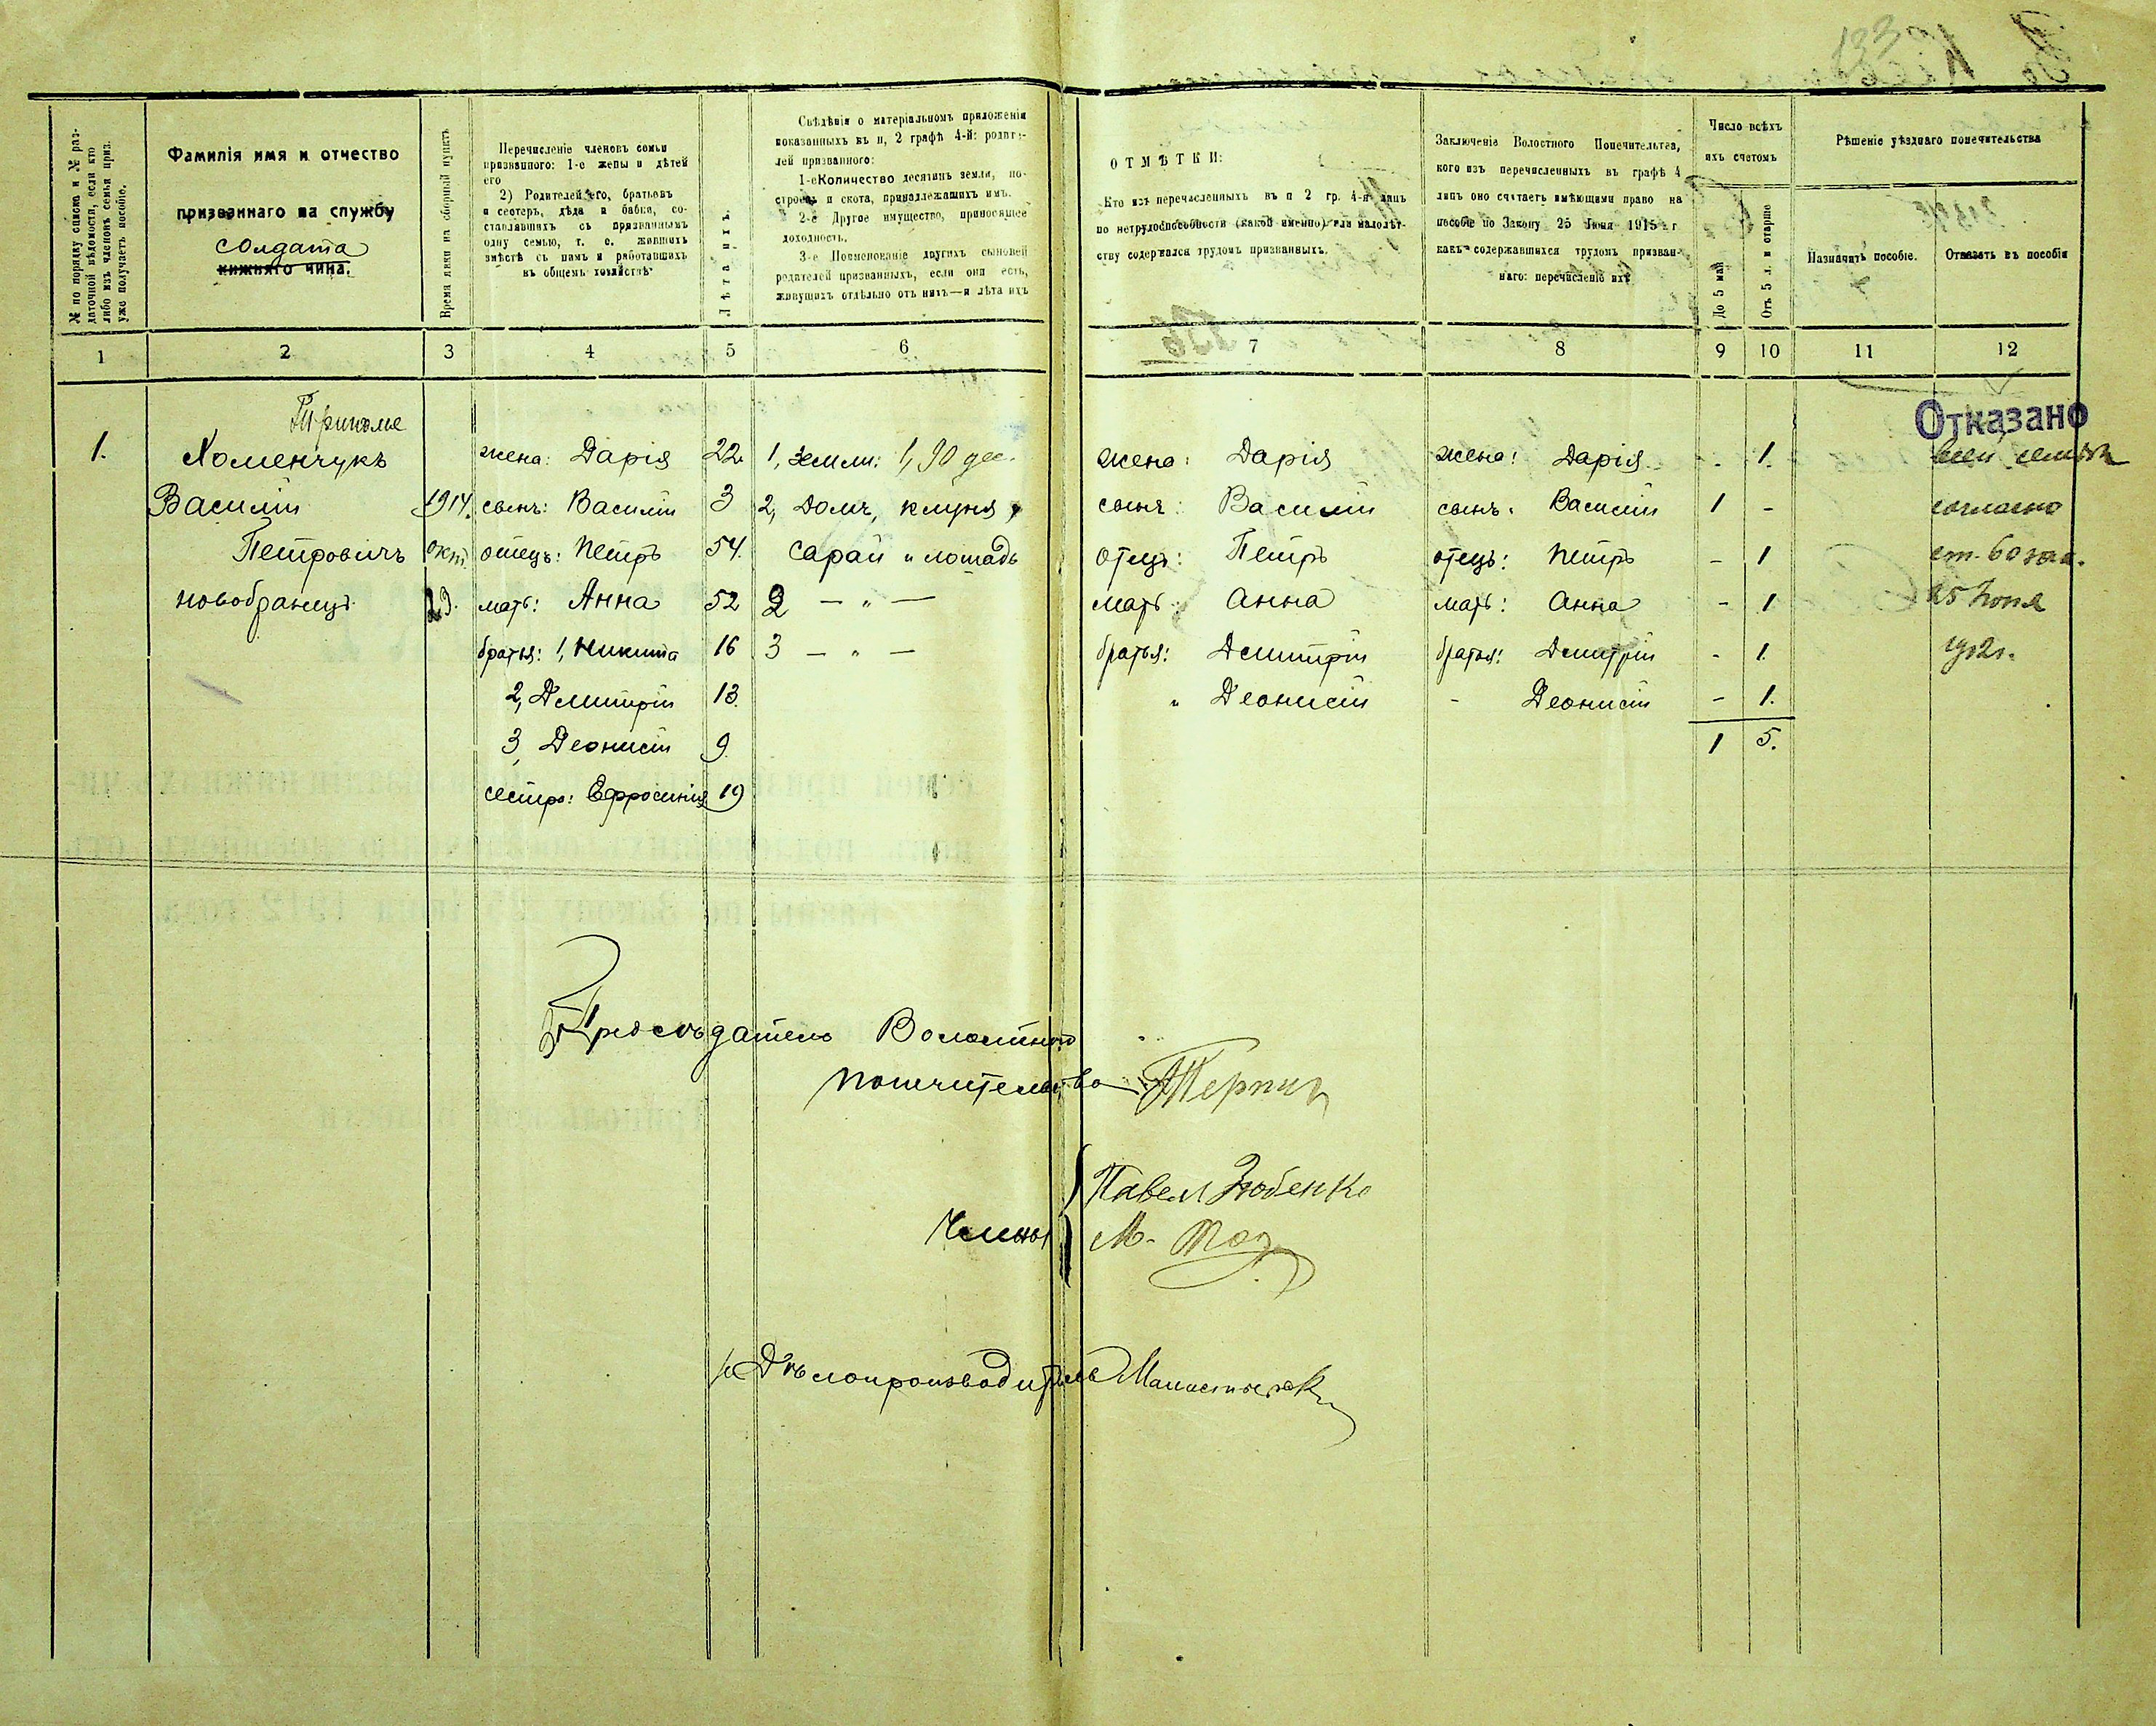 133
№ по порядку списка и № раз-
даточной вѣдомости, если кто
либо изъ членовъ семьи приз.
уже получаетъ пособіе.
Фамилія имя и отчество
призваннаго на службу
солдата
нижняго чина.
Время явки на сборный пунктъ
Перечисленіе членовъ семьи
призваннаго: 1-е жены и дѣтей
его
2) Родителей его, братьевъ
и сестеръ, дѣда и бабки, со-
ставлявшихъ съ призваннымъ
одну семью, т. е. жившихъ
вмѣстѣ съ нимъ и работавшихъ
въ общемъ хозяйствѣ
Лѣта ихъ.
Свѣдѣнія о матеріальномъ приложеніи
показанныхъ въ п, 2 графѣ 4-й: родите-
лей призваннаго:
1-е Количество десятинъ земли, по-
строекъ и скота, принадлежащихъ имъ.
2-е Другое имущество, приносящее
доходность.
3-е Поименованіе другихъ сыновей
родителей призванныхъ, если они есть,
живущихъ отдѣльно отъ нихъ—и лѣта ихъ
ОТМѢТКИ:
Кто изъ перечисленныхъ въ п 2 гр. 4-й лицъ
по нетрудоспособности (какой именно) или малолѣт-
ству содержался трудомъ призванныхъ.
Заключеніе Волостного Попечительства,
кого изъ перечисленныхъ въ графѣ 4
лицъ оно считаетъ имѣющими право на
пособіе по Закону 25 Іюня 1915 г
какъ содержавшихся трудомъ призван-
наго: перечисленіе ихъ
Число всѣхъ
ихъ счетомъ
До 5 лѣт
Отъ 5 л. и старше
Рѣшеніе уѣзднаго попечительства
Назначить пособіе.
Отказать въ пособіи
1 2 3 4 5 6 7 8 9 10 11 12
Триполье
Отказано
1. Хоменчукъ жена: Дарія 22. 1, земли: 1,90 дес. жена: Дарія жена: Дарія - 1. всей семьѣ
Василій 1914. сынъ: Василій 3 2, Домъ, клуня, сынъ: Василій сынъ: Василій 1 - согласно
Петровичъ окт. отецъ: Петръ 54. сарай и лошадь отецъ: Петръ отецъ: Петръ - 1 ст. 60 зак.
новобранецъ 23. мать: Анна 52 2 — " — мать: Анна мать: Анна - 1 25 Іюня
братья: 1, Никита 16 3 — " — братья: Дмитрій братья: Дмитрій - 1. 1912г.
2, Дмитрій 13. " Деонисій - Деонисій - 1.
3, Деонисій 9. 1 5.
сестра: Ефросинія 19
Предсѣдатель Волостного
попечительства
Члены Павел Зюбенко
М.
Дѣлопроизводитель